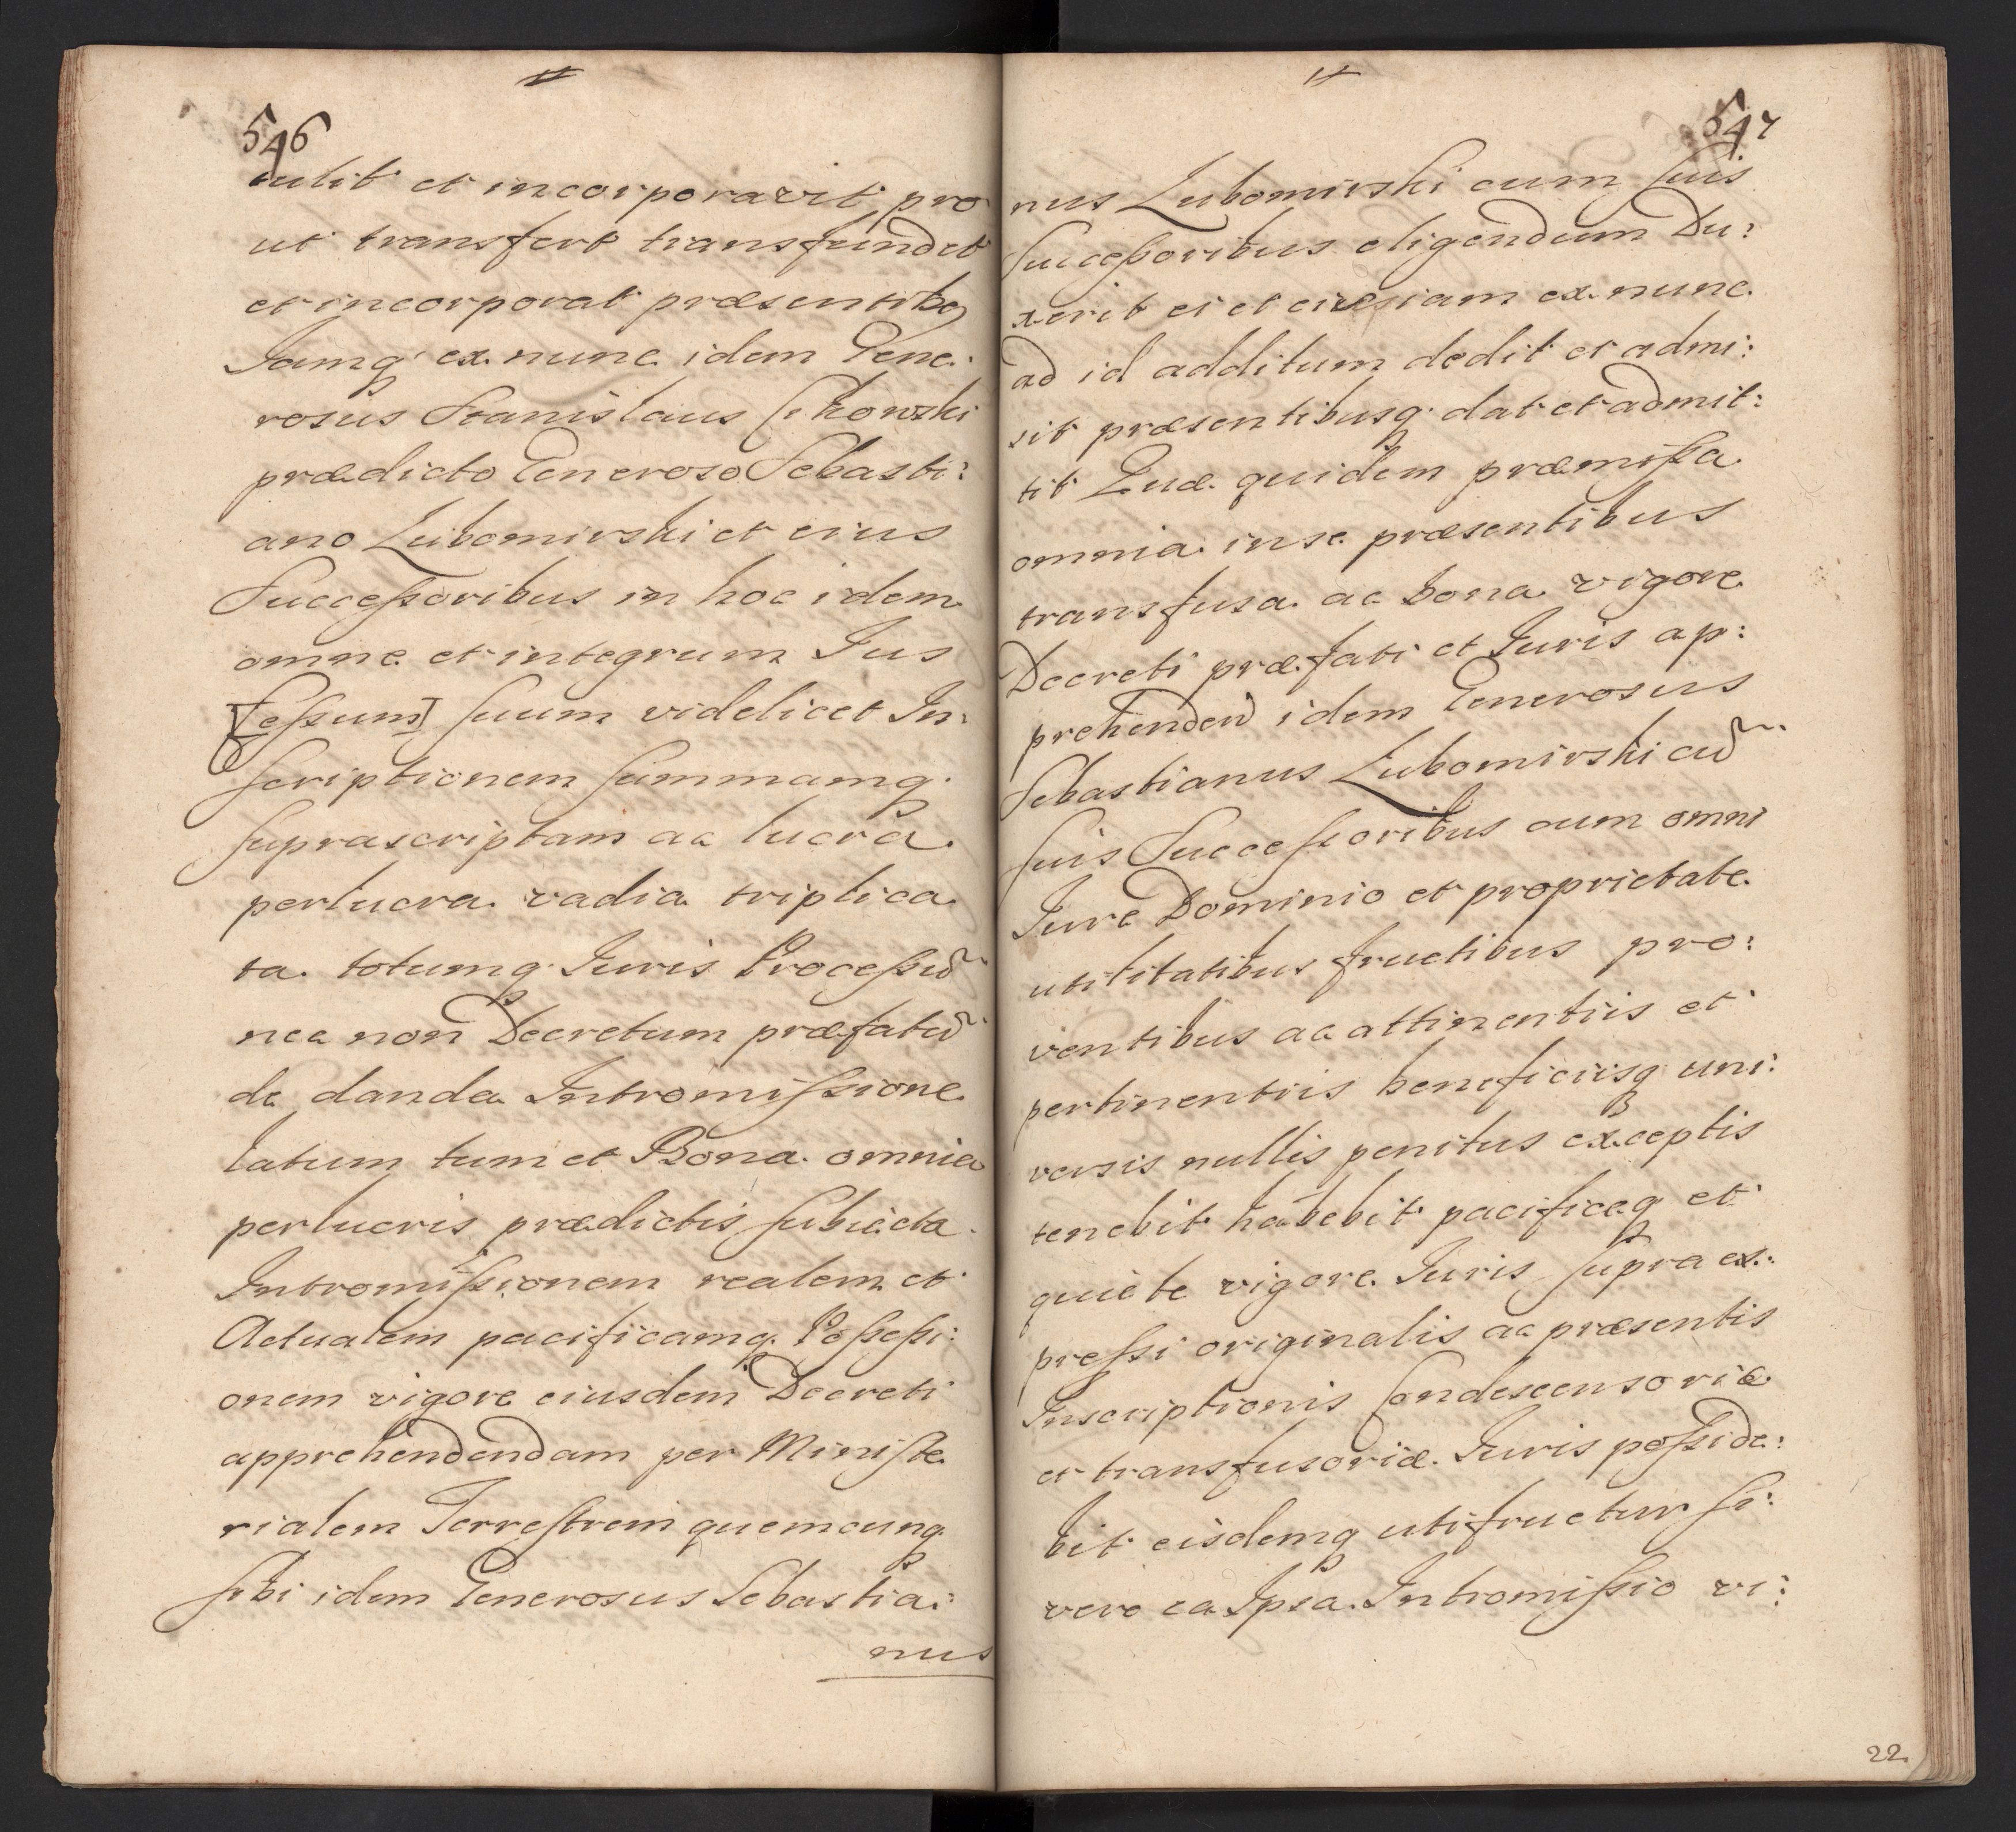 546
tulit et incorporavit pro
ut transfert transfundit
et incorporat præsentibq
Jamq ex nunc idem Gene:
rosus Stanislaus
prædicto Generoso Sebasti:
ano Lubomirski et eius
Successoribus in hoc idem
omne et integrum Jus
[Cessum] suum videlicet In:
scriptionem summamq
suprascriptam ac lucra
perlucra vadia triplica
ta totumq Juris Processũ
nec non Decretum præfatũ
de danda Intromissione
latum tum et Bona omnia
perlucris prædictis subiecta
Intromissionem realem et
Actualem pacificamq Possessi:
onem vigore eiusdem Decreti
apprehendendam per Ministe
rialem Terrestrem quemcunq
sibi idem Generosus Sebastia:
nus
547
nus Lubomirski cum suis
Successoribus eligendum Du:
xerit ei et eius iam ex nunc
ad id additum dedit et admi:
sit præsentibusq dat et admit:
tit Quæ quidem præmissa
omnia in se præsentibus
transfusa ac bona vigore
Decreti præfati et Juris ap:
prehenden idem Generosus
Sebastianus Lubomirski cũ
suis Successoribus cum omni
Jure Dominio et proprietate
utilitatibus fructibus pro:
ventibus ac attinentiis et
pertinentiis beneficiisq uni:
versis nullis penitus exceptis
tenebit habebit pacificeq et
quiete vigore Juris supra ex:
pressi originalis ac præsentis
Inscriptionis Condescensoriæ
et transfusoriæ Juris posside:
bit eisdemq utifruetur si:
vero ea Ipsa Intromissio vi:
22